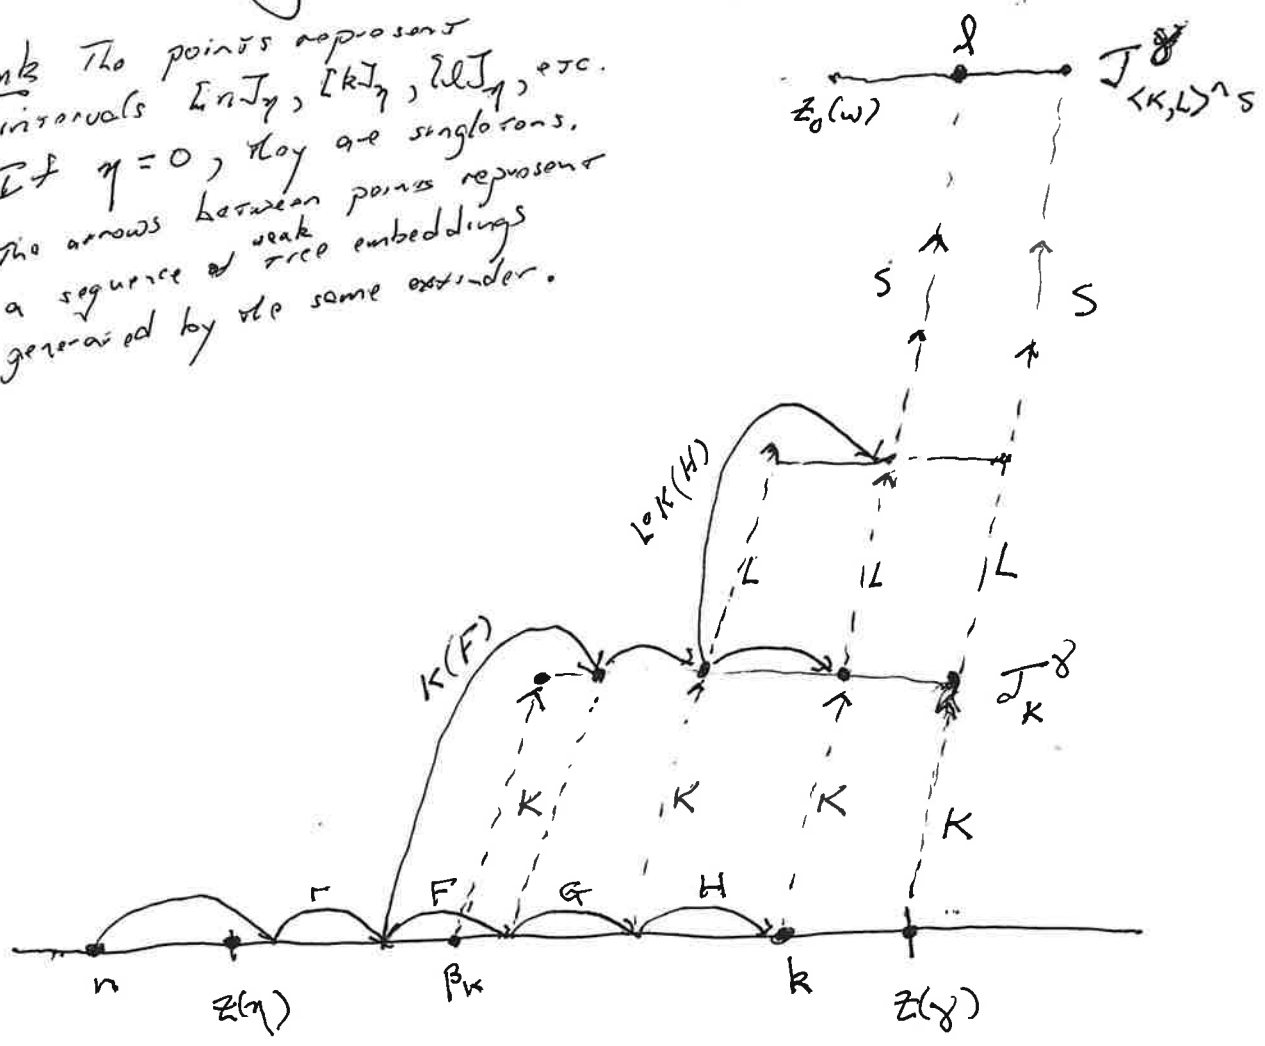 The points represent
intervals [n]_η, [k]_η, [l]_η, etc.
If η = 0, they are singletons.
The arrows between points represent
a sequence of weak tree embeddings
generated by the same extender.
l
J^γ_{<K,L>^S}
z_0(ω)
S
S
L∘K(H)
L
L
L
K(F)
J^γ_K
K
K
K
K
r
F
G
H
n
z(η)
β_K
k
z(γ)